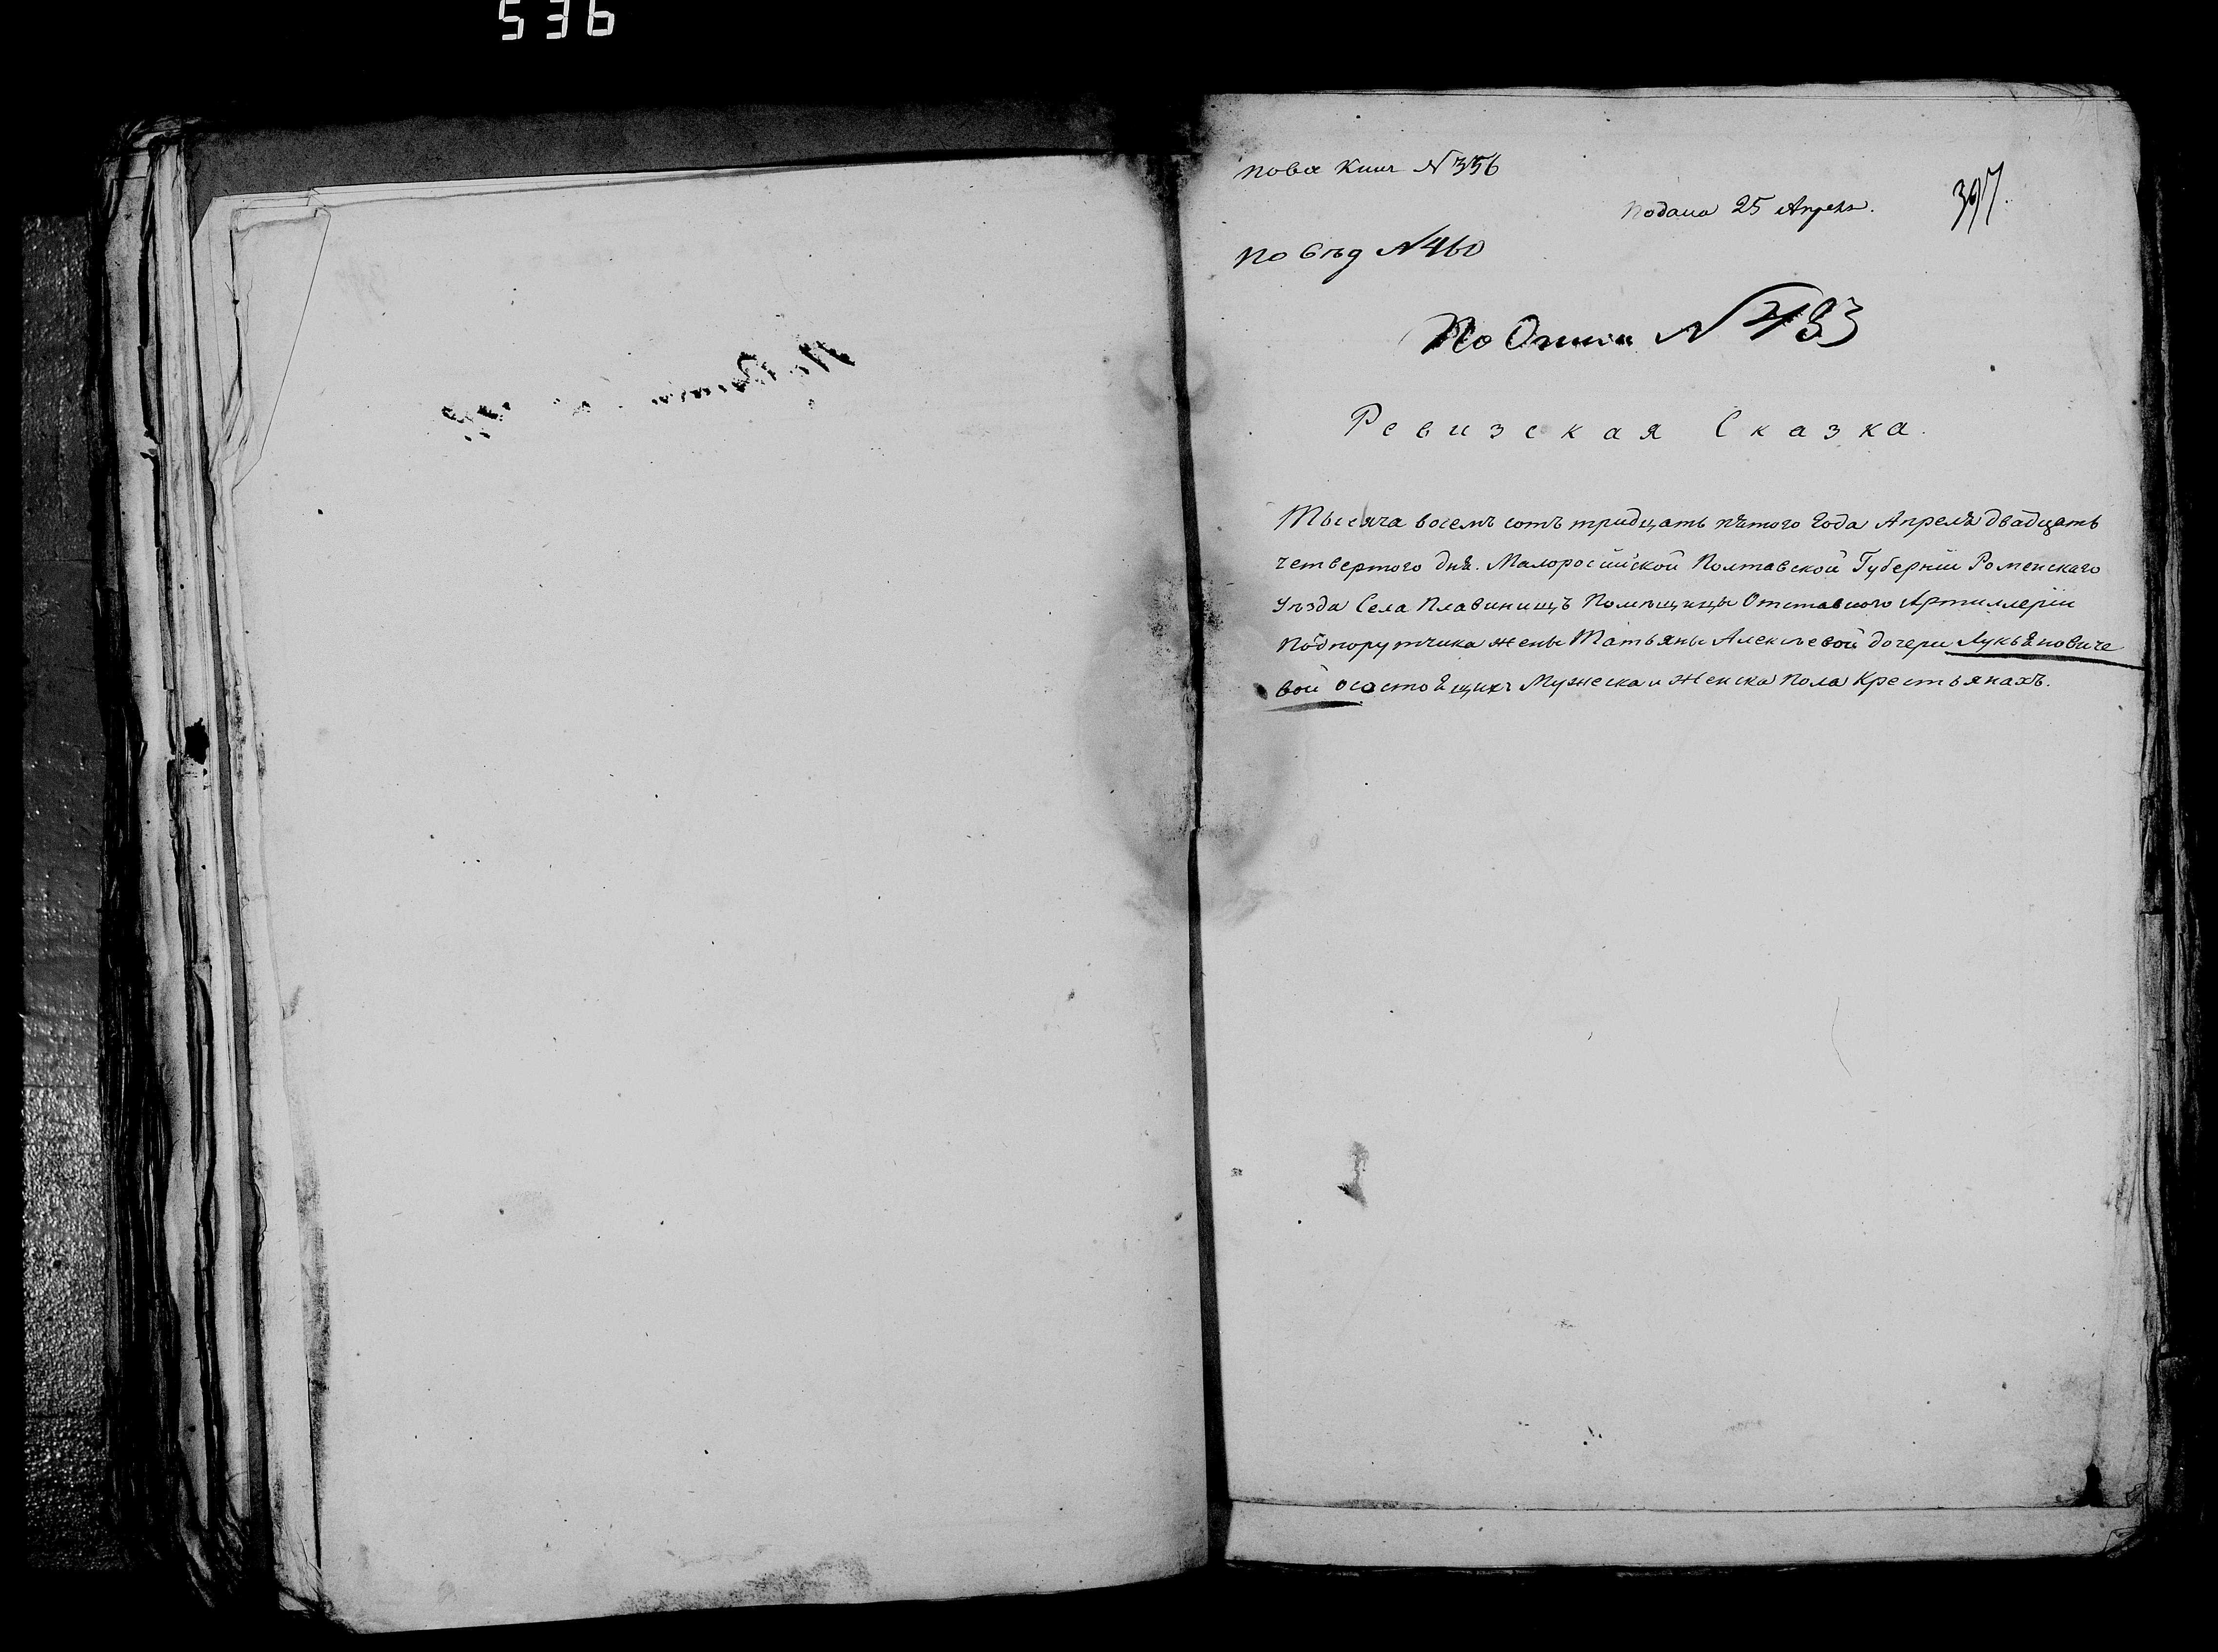 536
пова книг N 356
Подана 25 Апреля.
397.
по вѣд N 460
По Описи N 493
Ревизская Сказка.
Тысяча восемъ сотъ тридцать пятого года Апреля двадцать
четвертого дня. Малоросийской Полтавской Губерніи Роменскаго
Уѣзда Села Плавинищъ Помѣщицы Отставного Артиллеріи
Подпорутчика жены Татьяны Алексѣевой дочери Лукьяновиче
вой осостоящихъ Мужеска и Женска Пола Крестьянахъ.